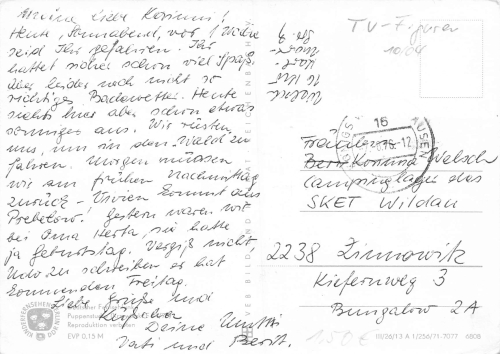 Meine liebe Korinna!
Heute, Sonnabend, vor 1 Woche
seid Ihr gefahren. Ihr
hattet sicher schon viel Spaß,
aber leider noch nicht so
richtiges Badewetter. Heute
sieht's hier aber schon etwas
sonniger aus. Wir rüsten
uns, um in den Wald zu
fahren. Morgen müssen
wir am frühen Nachmittag
zurück - Vivien kommt aus
Prebelow! Gestern waren wir
bei Oma Herta, sie hatte
ja Geburtstag. Vergiß nicht,
Udo zu schreiben, er hat
kommenden Freitag.
Liebe Grüße und
Küßchen
Deine Mutti
Vati und Bernd.
TV-Figuren
10/04
15
HAUSEN
75-12
Fräulein
Korinna Welsch
Campinglager des
SKET Wildau
2238 Zinnowitz
Kiefernweg 3
Bungalow 2A
1,50 €
VEB BILD UND
KINDERFERNSEHEN
Puppenstudio
Reproduktion verboten
EVP 0,15 M
III/26/13 A 1/256/71-7077 6808